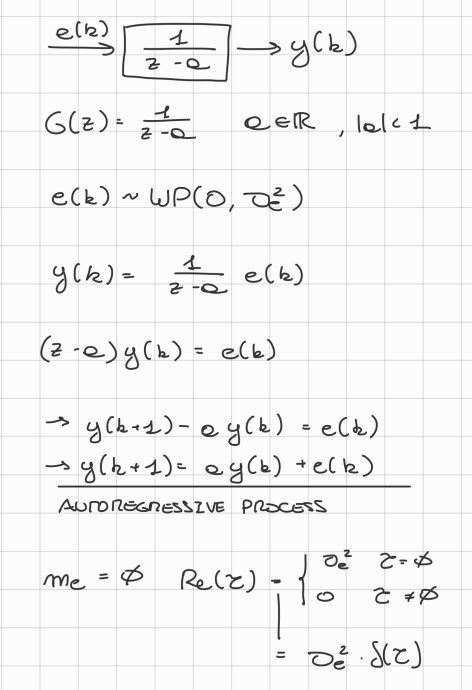 e(k) → 1/(z - a) → y(k)
G(z) = 1/(z - a) a ∈ ℝ , |a| < 1
e(k) ~ WP(0, σe²)
y(k) = 1/(z - a) e(k)
(z - a) y(k) = e(k)
→ y(k+1) - a y(k) = e(k)
→ y(k+1) = a y(k) + e(k)
AUTOREGRESSIVE PROCESS
me = ∅ Re(τ) = { σe² τ = ∅
0 τ ≠ ∅
= σe² · δ(τ)